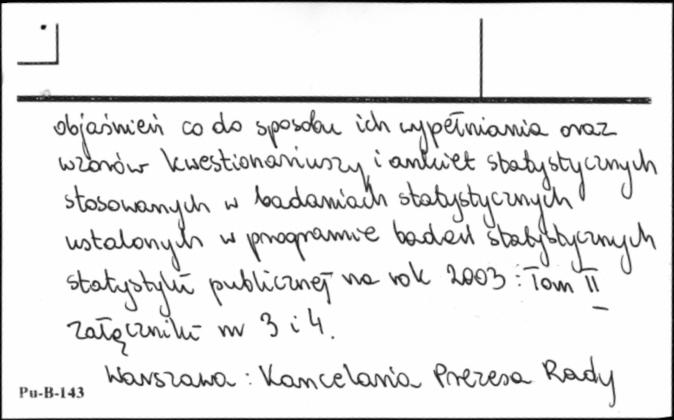 objaśnień co do sposobu ich wypełniania oraz
wzorów kwestionariuszy i ankiet statystycznych
stosowanych w badaniach statystycznych
ustalonych w programie badań statystycznych
statystyki publicznej na rok 2003 : Tom II
załączniki nr 3 i 4.
Warszawa : Kancelaria Prezesa Rady
Pu-B-143